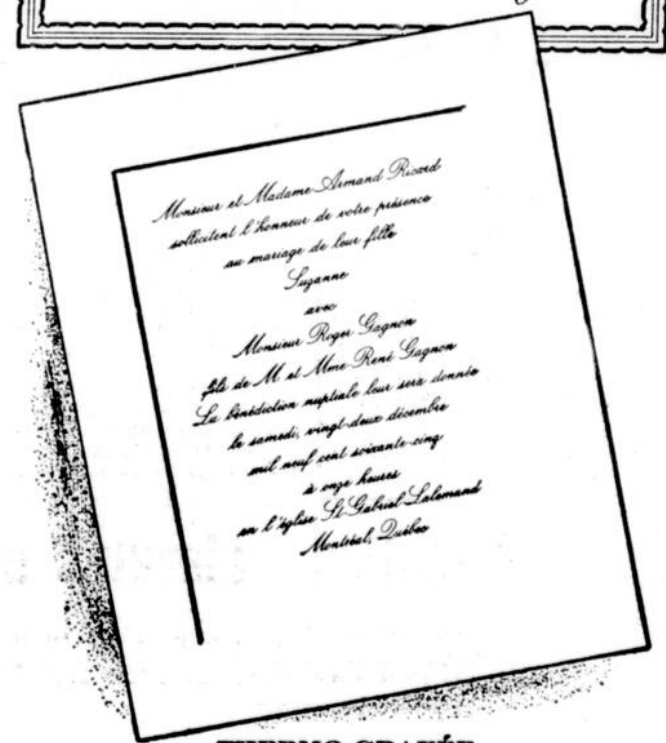 Monsieur et Madame Armand Ricard
sollicitent l'honneur de votre présence
au mariage de leur fille
Suzanne
avec
Monsieur Roger Gagnon
fils de M et Mme René Gagnon
La bénédiction nuptiale leur sera donnée
le samedi, vingt-deux décembre
mil neuf cent soixante-cinq
à onze heures
en l'église St-Gabriel Lalemand
Montréal, Québec